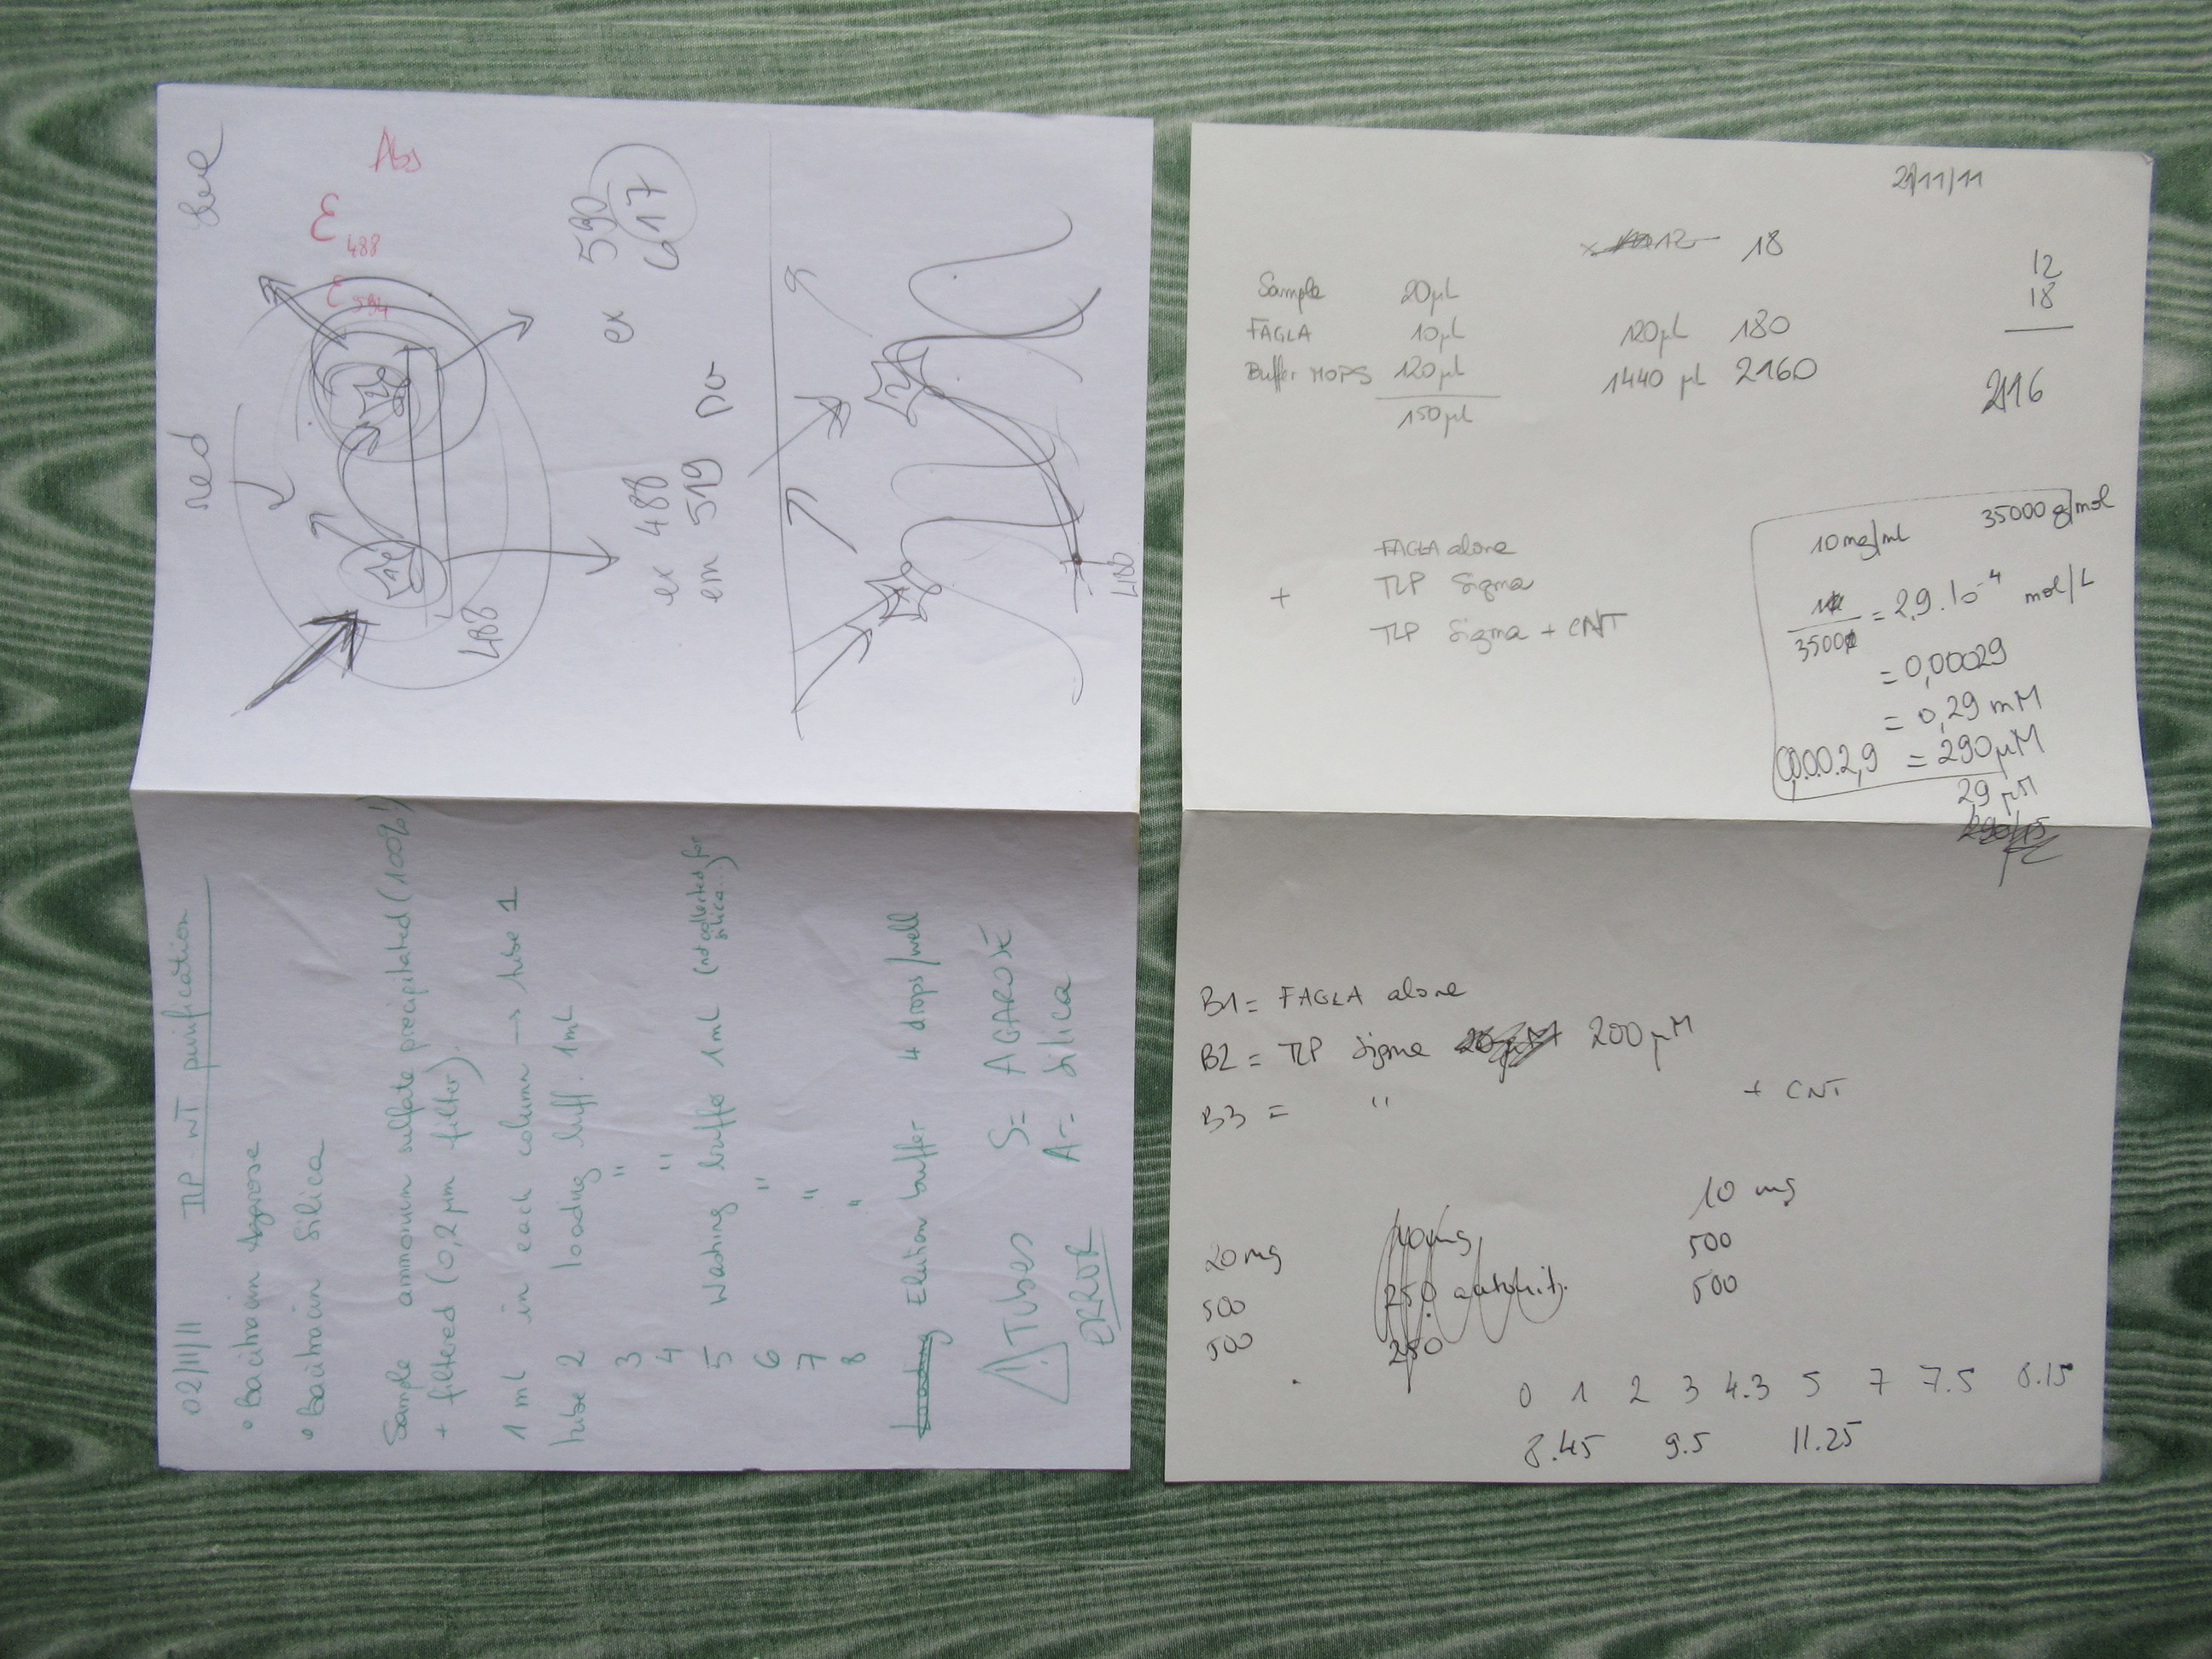 02/11/11 TLP-WT purification
• Bacitracin Agarose
• Bacitracin Silica
Sample ammonium sulfate precipitated (100%!)
+ filtered (0,2 µm filter)
1 ml in each column → tube 1
tube 2 loading buff. 1mL
3 "
4 "
5 Washing buffer 1mL (not collected for silica...)
6 "
7 "
8 "
Loading Elution buffer 4 drops/well
! Tubes S= AGAROSE
ERROR A= Silica
red
Abs
ε 488
ε 594
488
ex 488
em 519
ex 590
617
488
21/11/11
18
Sample 20µL
FAGLA 10µL 120µL 180
Buffer MOPS 120µL 1440 µL 2160
150µL
12
18
2116
FAGLA alone
+ TLP Sigma
TLP Sigma + CNT
10mg/ml 35000g/mol
= 2,9.10-4 mol/L
35000
= 0,00029
= 0,29 mM
0,00.0.2,9 = 290µM
29 µM
B1= FAGLA alone
B2= TLP Sigma 200µM
B3 = " + CNT
20mg 10mg 10 mg
500 250 500
500 250 500
0 1 2 3 4.3 5 7 7.5 8.15
8.45 9.5 11.25